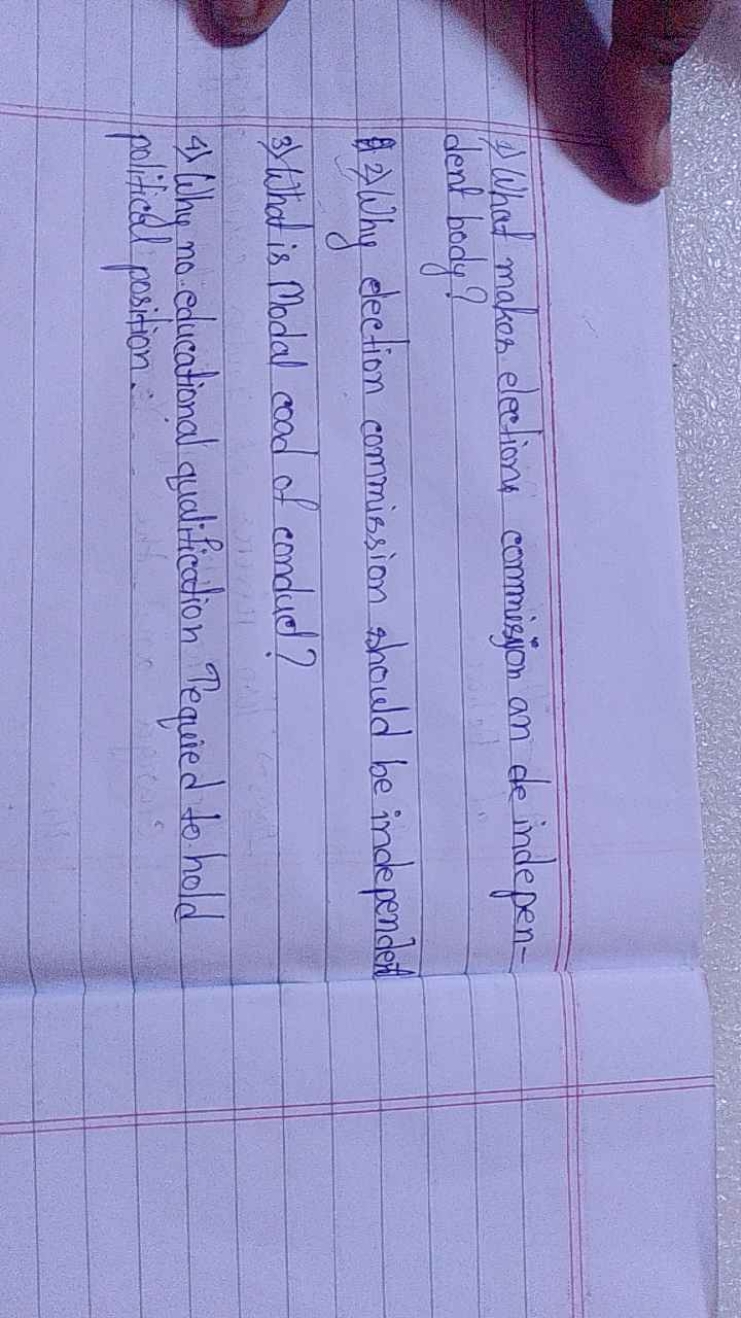 1) What makes elections commission an de indepen-
dent body?
2) Why election commission should be independent
3) What is Modal coad of conduct?
4) Why no educational qualification required to hold
political position.